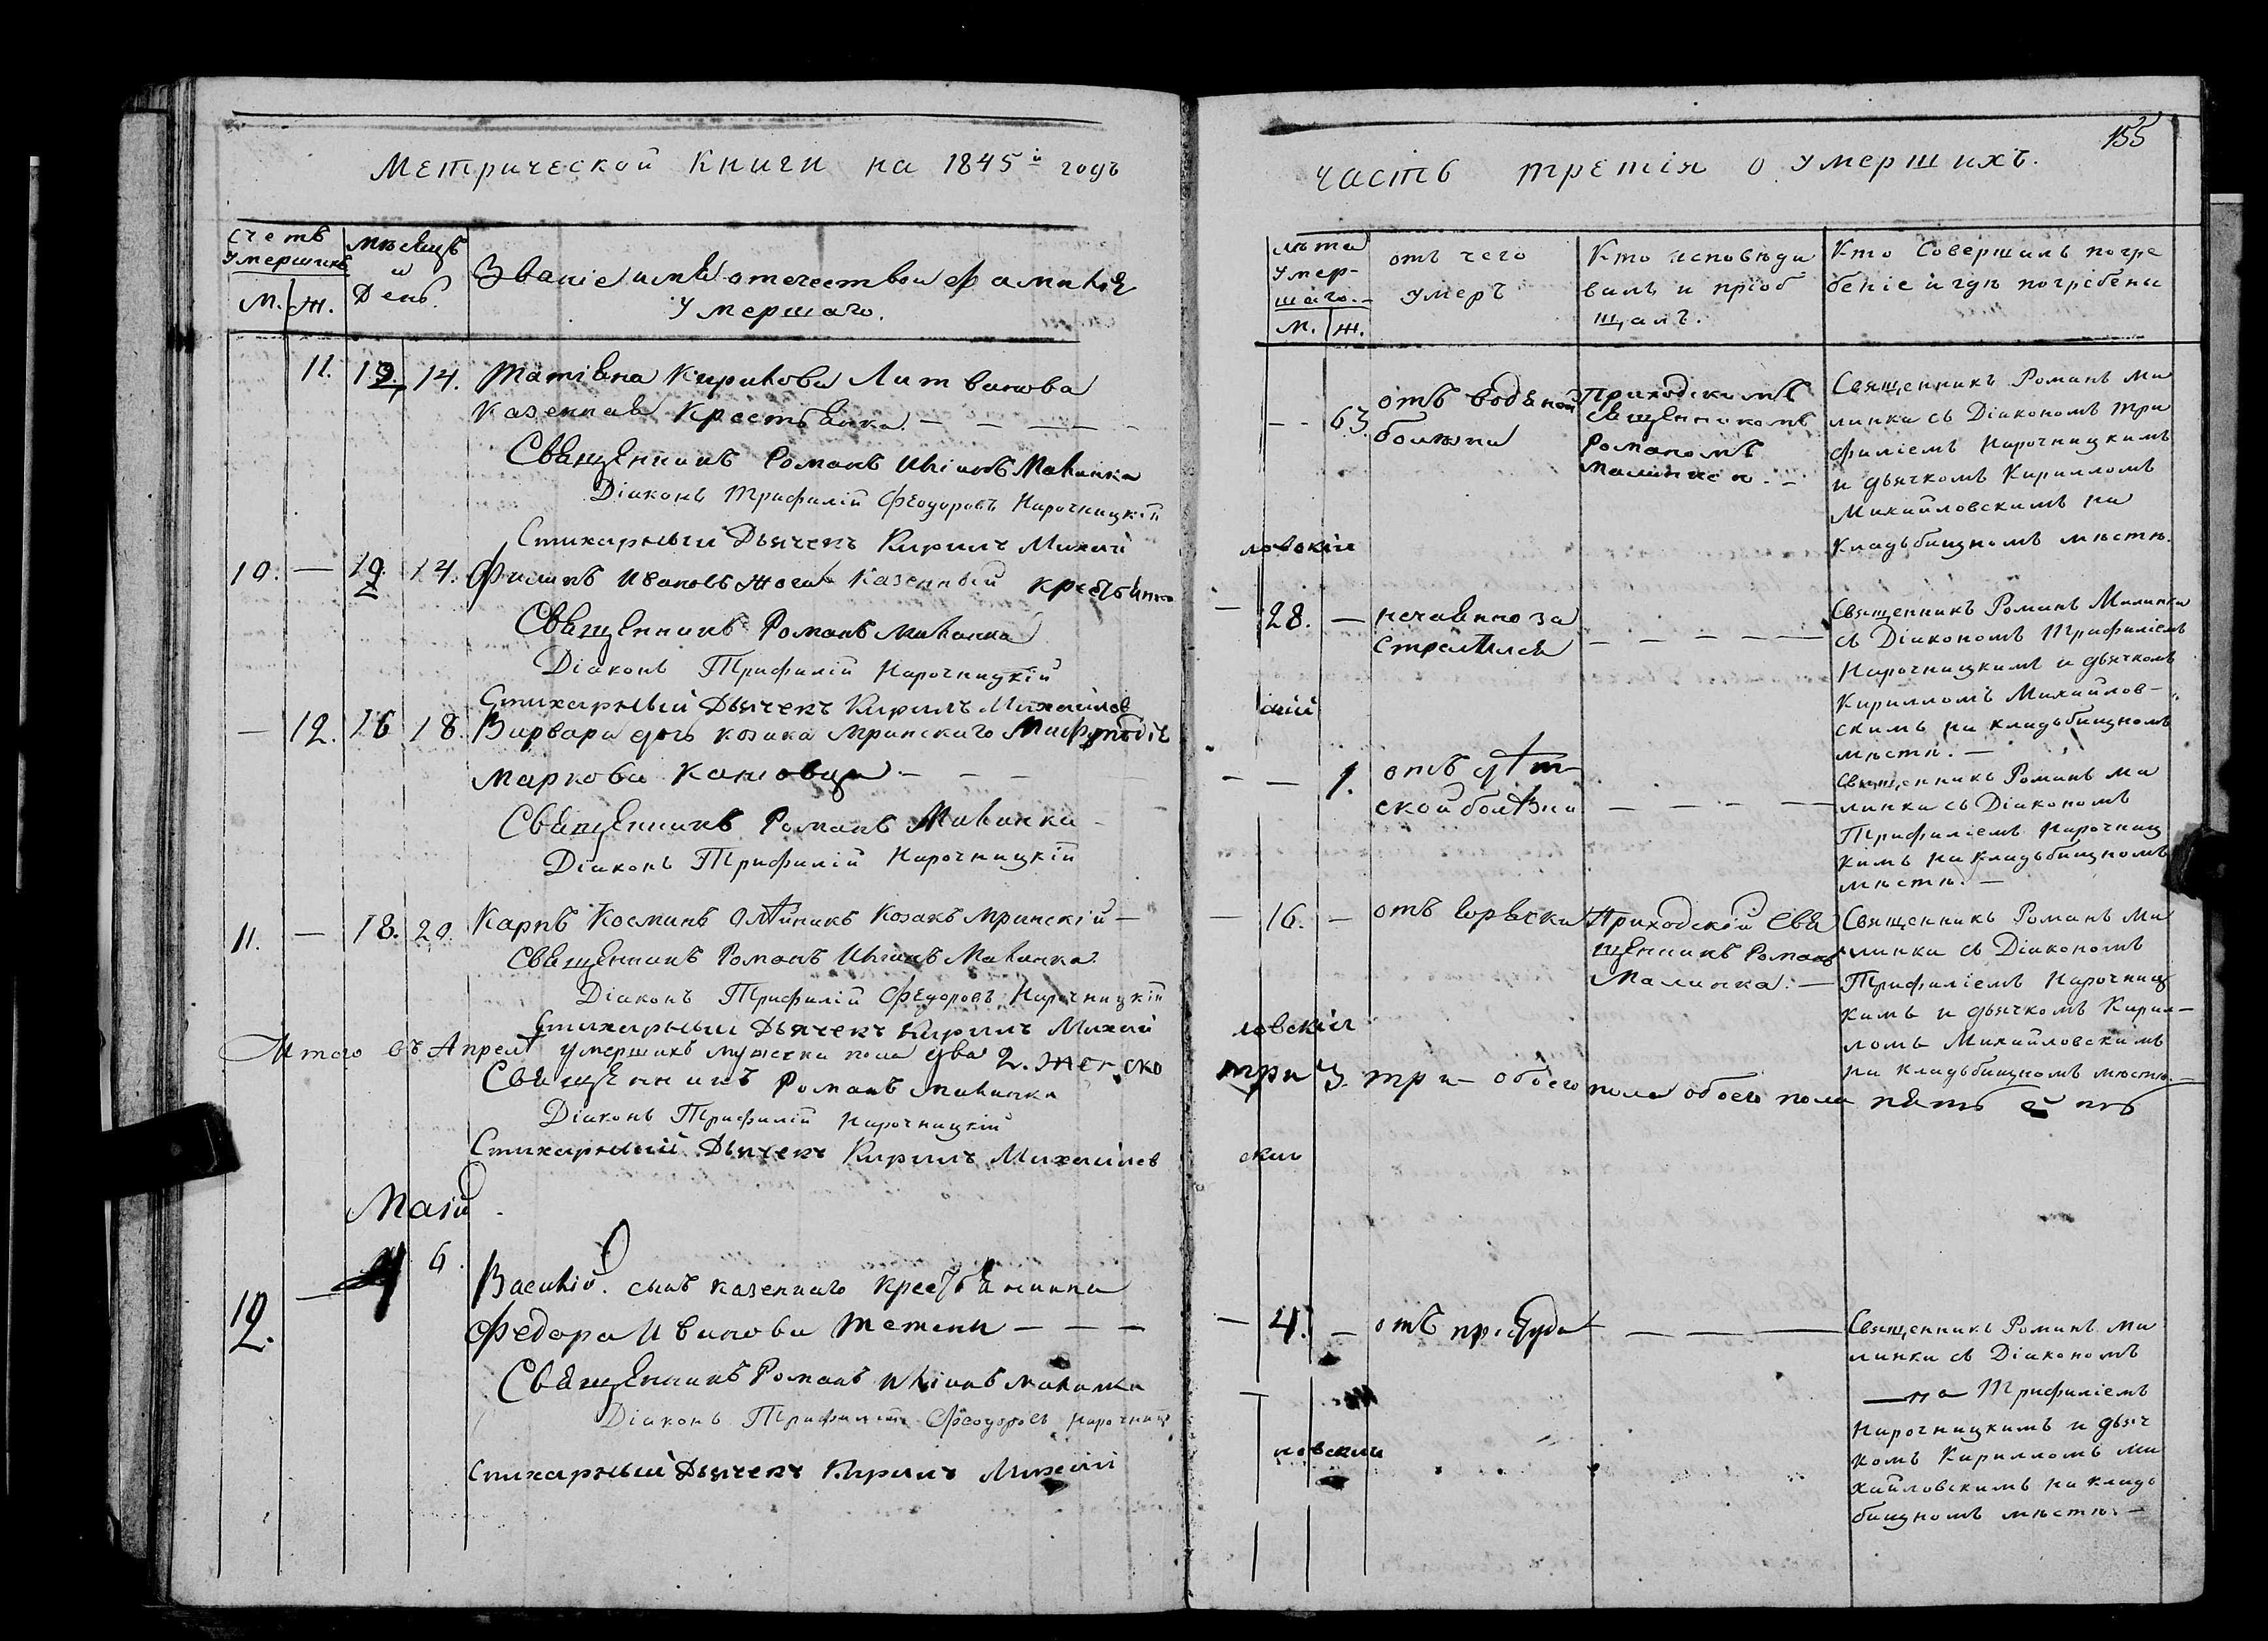 Метрической Книги на 1845й годъ
счетъ умершихъ
м. ж.
мѣсяцъ и День.
Званіе имя отечество и фамилія
Умершаго.
11. 13. 14. Татіана Кирилова Литвинова
Казенная Крестьянка. — — —
Священникъ Романъ Иліинъ Малинка
Діаконъ Трифилій Феодоровъ Нарочницкій
Стихарный Дьячекъ Кирилъ Михай
10. — 12. 14. Филипъ Ивановъ Казенный крестьянинъ
Священникъ Романъ Малинка
Діаконъ Трифилій Нарочницкій
Стихарный Дьячекъ Кирилъ Михайлов
— 12. 16 18. Варвара дочь козака Мринскаго
Маркова — — —
Священникъ Романъ Малинка
Діаконъ Трифилій Нарочницкій
11. — 18. 20. Карпъ Косминъ Олѣйникъ Козакъ Мринскій —
Священникъ Романъ Иліинъ Малинка.
Діаконъ Трифилій Феодоровъ Нарочницкій
Стихарный Дьячекъ Кирилъ Михай
Итого въ Апрелѣ умершихъ мужеска пола два 2. женско
Священникъ Романъ Малинка
Діаконъ Трифилій Нарочницкій
Стихарный Дьячекъ Кирилъ Михайлов
Маій
12. — 4 6. Василій. сынъ казеннаго крестьянина
Федора Иванова Тетени — — —
Священникъ Романъ Иліинъ Малинка
Діаконъ Трифилій Феодоровъ Нарочниц
Стихарный Дьячекъ Кирилъ Михай
155
часть третія о умершихъ.
лѣта Умершаго.
м. ж.
отъ чего
умеръ
Кто исповѣды
валъ и пріоб
щалъ.
Кто Совершилъ погре
беніе и гдѣ погребены
— — 63. отъ водяной
болѣзни
Приходскимъ
Священникомъ
Романомъ
Малинкою. —
Священникъ Романъ Ма
линка съ Діакономъ Три
филіемъ Нарочницкимъ
и дьячкомъ Кирилломъ
Михайловскимъ на
Кладьбищномъ мѣстѣ.
ловскій
— 28. — нечаянно за
стрелился
— — — —
Священникъ Романъ Малинка
съ Діакономъ Трифиліемъ
Нарочницкимъ и дьячкомъ
Кирилломъ Михайлов-
скимъ на кладьбищномъ
мѣстѣ. —
скій
— — 1. отъ дѣт
ской болѣзни
— — — —
Священникъ Романъ Ма
линка съ Діакономъ
Трифиліемъ Нарочниц
кимъ на кладьбищномъ
мѣстѣ. —
— 16. — отъ горячки
Приходскій Свя
щенникъ Романъ
Малинка. —
Священникъ Романъ Ма
линка съ Діакономъ
Трифиліемъ Нарочниц
кимъ и дьячкомъ Кирил-
ломъ Михайловскимъ
на кладьбищномъ мѣстѣ. —
ловскій
три 3. три — обоего пола обоего пола пять
скій
— 4. — отъ простуды — — — —
Священникъ Романъ Ма
линка съ Діакономъ
Трифиліемъ
Нарочницкимъ и дьяч
комъ Кирилломъ Ми
хайловскимъ на кладь
бищномъ мѣстѣ. —
ловскій